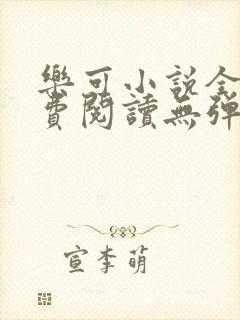 樂可小說全
費閱讀無彈
宣李萌